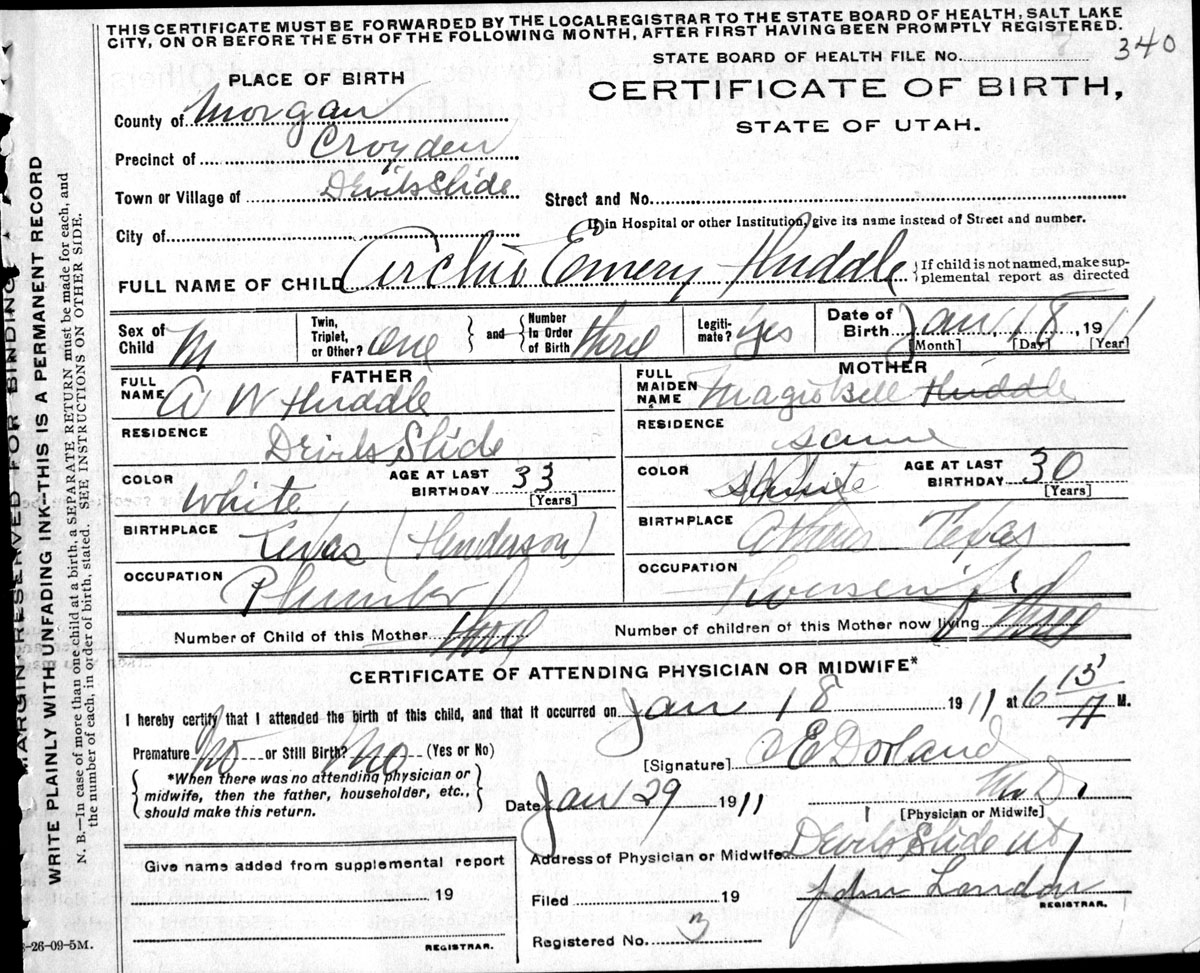 THIS CERTIFICATE MUST BE FORWARDED BY THE LOCAL REGISTRAR TO THE STATE BOARD OF HEALTH, SALT LAKE
CITY, ON OR BEFORE THE 5TH OF THE FOLLOWING MONTH, AFTER FIRST HAVING BEEN PROMPTLY REGISTERED.
STATE BOARD OF HEALTH FILE No. 340
PLACE OF BIRTH
CERTIFICATE OF BIRTH,
STATE OF UTAH.
County of Morgan
Precinct of Croyden
Town or Village of Devils Slide
Street and No.
If in Hospital or other Institution, give its name instead of Street and number.
City of
FULL NAME OF CHILD Archie Emery Huddle
{If child is not named, make sup-
plemental report as directed
Sex of Child M
Twin, Triplet, or Other? One
and
Number In Order of Birth three
Legiti-mate? yes
Date of Birth Jan, 18, 1911
[Month] [Day] [Year]
FATHER
FULL NAME A W Huddle
RESIDENCE Devils Slide
COLOR White
AGE AT LAST BIRTHDAY 33
[Years]
BIRTHPLACE Texas (Henderson)
OCCUPATION Plumber
MOTHER
FULL MAIDEN NAME Magie Bell Huddle
RESIDENCE same
COLOR White
AGE AT LAST BIRTHDAY 30
[Years]
BIRTHPLACE Athens Texas
OCCUPATION Housewife
Number of Child of this Mother three
Number of children of this Mother now living three
CERTIFICATE OF ATTENDING PHYSICIAN OR MIDWIFE*
I hereby certify that I attended the birth of this child, and that it occurred on Jan 18 1911 at 6 15 M.
Premature No or Still Birth? No (Yes or No)
*When there was no attending physician or
midwife, then the father, householder, etc.,
should make this return.
[Signature] C E Dorland
M.D.
Date Jan 29 1911
[Physician or Midwife]
Give name added from supplemental report
19
REGISTRAR.
Address of Physician or Midwife Devils Slide Ut
Filed 19 John London
REGISTRAR.
Registered No. 3
-26-09-5M.
MARGIN RESERVED FOR BINDING
WRITE PLAINLY WITH UNFADING INK-THIS IS A PERMANENT RECORD
N. B.—In case of more than one child at a birth, a SEPARATE RETURN must be made for each, and
the number of each, in order of birth, stated. SEE INSTRUCTIONS ON OTHER SIDE.